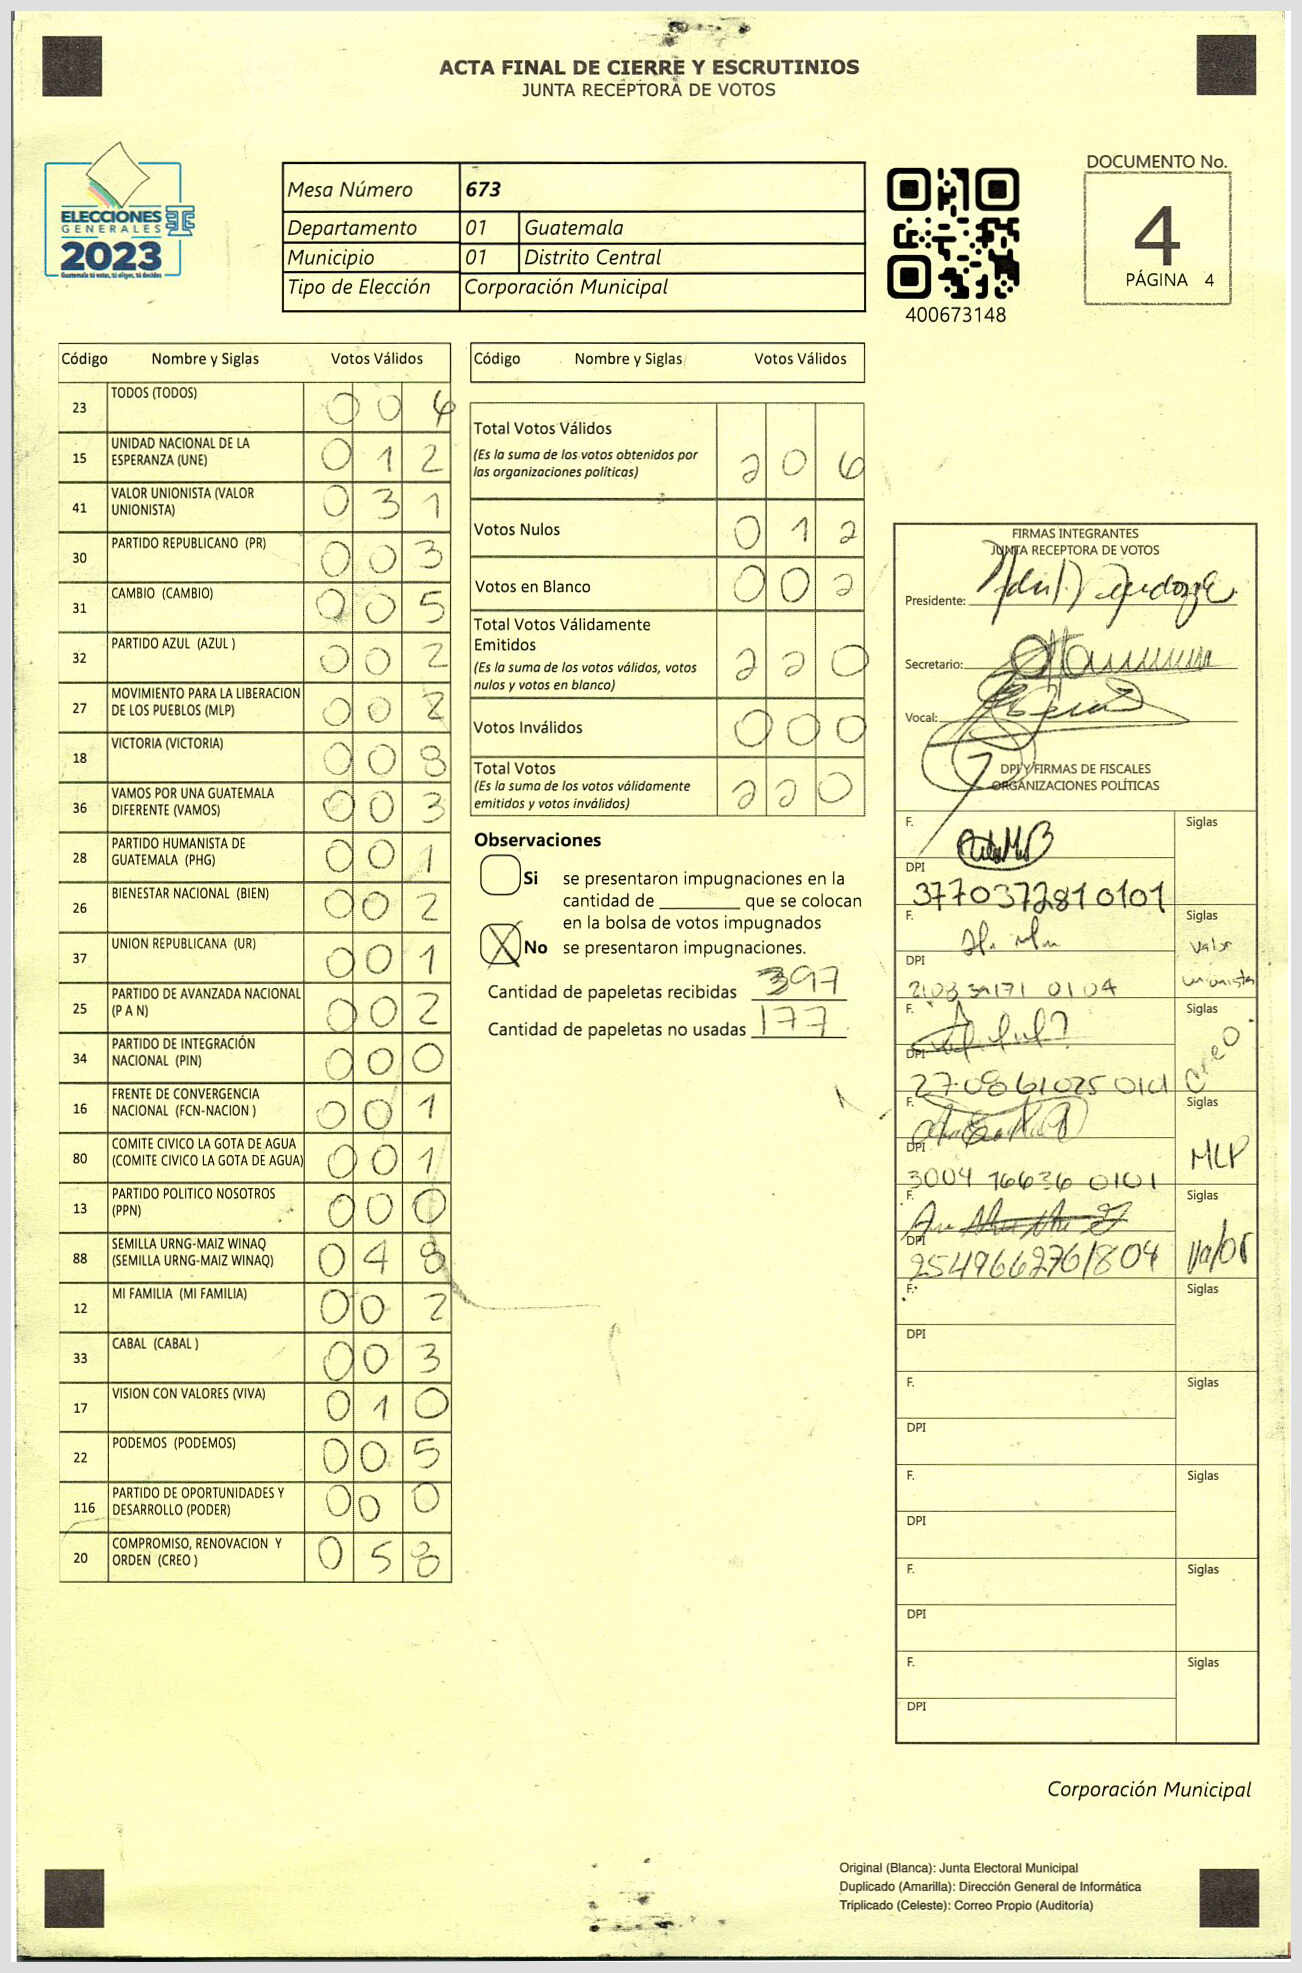 ACTA FINAL DE CIERRE Y ESCRUTINIOS
JUNTA RECEPTORA DE VOTOS
ELECCIONES
GENERALES
2023
Guatemala tú votas, tú eliges, tú decides
Mesa Número 673
Departamento 01 Guatemala
Municipio 01 Distrito Central
Tipo de Elección Corporación Municipal
400673148
DOCUMENTO No.
4
PÁGINA 4
Código Nombre y Siglas Votos Válidos
23 TODOS (TODOS) 0 0 4
15 UNIDAD NACIONAL DE LA
ESPERANZA (UNE) 0 1 2
41 VALOR UNIONISTA (VALOR
UNIONISTA) 0 3 1
30 PARTIDO REPUBLICANO (PR) 0 0 3
31 CAMBIO (CAMBIO) 0 0 5
32 PARTIDO AZUL (AZUL ) 0 0 2
27 MOVIMIENTO PARA LA LIBERACION
DE LOS PUEBLOS (MLP) 0 0 2
18 VICTORIA (VICTORIA) 0 0 8
36 VAMOS POR UNA GUATEMALA
DIFERENTE (VAMOS) 0 0 3
28 PARTIDO HUMANISTA DE
GUATEMALA (PHG) 0 0 1
26 BIENESTAR NACIONAL (BIEN) 0 0 2
37 UNION REPUBLICANA (UR) 0 0 1
25 PARTIDO DE AVANZADA NACIONAL
(P A N) 0 0 2
34 PARTIDO DE INTEGRACIÓN
NACIONAL (PIN) 0 0 0
16 FRENTE DE CONVERGENCIA
NACIONAL (FCN-NACION ) 0 0 1
80 COMITE CIVICO LA GOTA DE AGUA
(COMITE CIVICO LA GOTA DE AGUA) 0 0 1
13 PARTIDO POLITICO NOSOTROS
(PPN) 0 0 0
88 SEMILLA URNG-MAIZ WINAQ
(SEMILLA URNG-MAIZ WINAQ) 0 4 8
12 MI FAMILIA (MI FAMILIA) 0 0 2
33 CABAL (CABAL ) 0 0 3
17 VISION CON VALORES (VIVA) 0 1 0
22 PODEMOS (PODEMOS) 0 0 5
116 PARTIDO DE OPORTUNIDADES Y
DESARROLLO (PODER) 0 0 0
20 COMPROMISO, RENOVACION Y
ORDEN (CREO ) 0 5 8
Código Nombre y Siglas Votos Válidos
Total Votos Válidos
(Es la suma de los votos obtenidos por
las organizaciones políticas) 2 0 6
Votos Nulos 0 1 2
Votos en Blanco 0 0 2
Total Votos Válidamente
Emitidos
(Es la suma de los votos válidos, votos
nulos y votos en blanco) 2 2 0
Votos Inválidos 0 0 0
Total Votos
(Es la suma de los votos válidamente
emitidos y votos inválidos) 2 2 0
Observaciones
Si se presentaron impugnaciones en la
cantidad de ________ que se colocan
en la bolsa de votos impugnados
X No se presentaron impugnaciones.
Cantidad de papeletas recibidas 397
Cantidad de papeletas no usadas 177
FIRMAS INTEGRANTES
JUNTA RECEPTORA DE VOTOS
Presidente:
Secretario:
Vocal:
DPI Y FIRMAS DE FISCALES
ORGANIZACIONES POLÍTICAS
F. Siglas
DPI
3770372810101
F. Siglas
Valor
unionista
DPI
0104
F. Siglas
CREO
DPI
F. Siglas
MLP
DPI
3004 16636 0101
F. Siglas
Valor
DPI
2549662761804
F. Siglas
DPI
F. Siglas
DPI
F. Siglas
DPI
F. Siglas
DPI
F. Siglas
DPI
Corporación Municipal
Original (Blanca): Junta Electoral Municipal
Duplicado (Amarilla): Dirección General de Informática
Triplicado (Celeste): Correo Propio (Auditoría)